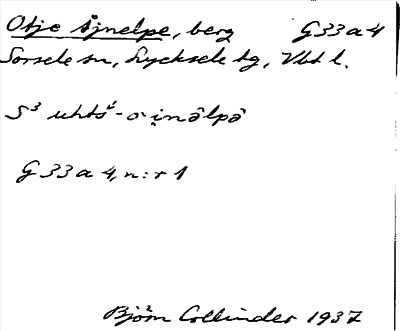 Otje Åjnelpe, berg G 33 a 4
Sorsele sn, Lycksele tg, Vbt l.
G 33 a 4, n:r 1
Björn Collinder 1937